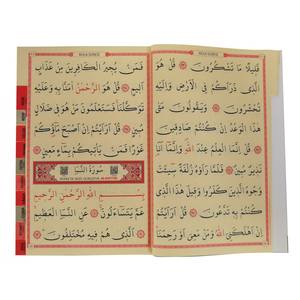 قَلِيلًا مَا تَشْكُرُونَ قُلْ هُوَ
الَّذِي ذَرَأَكُمْ فِي الْأَرْضِ وَإِلَيْهِ
تُحْشَرُونَ وَيَقُولُونَ مَتَى
هٰذَا الْوَعْدُ إِنْ كُنْتُمْ صَادِقِينَ
قُلْ إِنَّمَا الْعِلْمُ عِنْدَ اللّٰهِ وَإِنَّمَا أَنَا
نَذِيرٌ مُبِينٌ فَلَمَّا رَأَوْهُ زُلْفَةً سِيئَتْ
وُجُوهُ الَّذِينَ كَفَرُوا وَقِيلَ هٰذَا الَّذِي
كُنْتُمْ بِهِ تَدَّعُونَ قُلْ أَرَأَيْتُمْ
إِنْ أَهْلَكَنِيَ اللّٰهُ وَمَنْ مَعِيَ أَوْ رَحِمَنَا
فَمَنْ يُجِيرُ الْكَافِرِينَ مِنْ عَذَابٍ
أَلِيمٍ قُلْ هُوَ الرَّحْمٰنُ آمَنَّا بِهِ وَعَلَيْهِ
تَوَكَّلْنَا فَسَتَعْلَمُونَ مَنْ هُوَ فِي ضَلَالٍ
مُبِينٍ قُلْ أَرَأَيْتُمْ إِنْ أَصْبَحَ مَاؤُكُمْ
غَوْرًا فَمَنْ يَأْتِيكُمْ بِمَاءٍ مَعِينٍ
سُورَةُ النَّبَإِ
بِسْمِ اللّٰهِ الرَّحْمٰنِ الرَّحِيمِ
عَمَّ يَتَسَاءَلُونَ عَنِ النَّبَإِ الْعَظِيمِ
الَّذِي هُمْ فِيهِ مُخْتَلِفُونَ